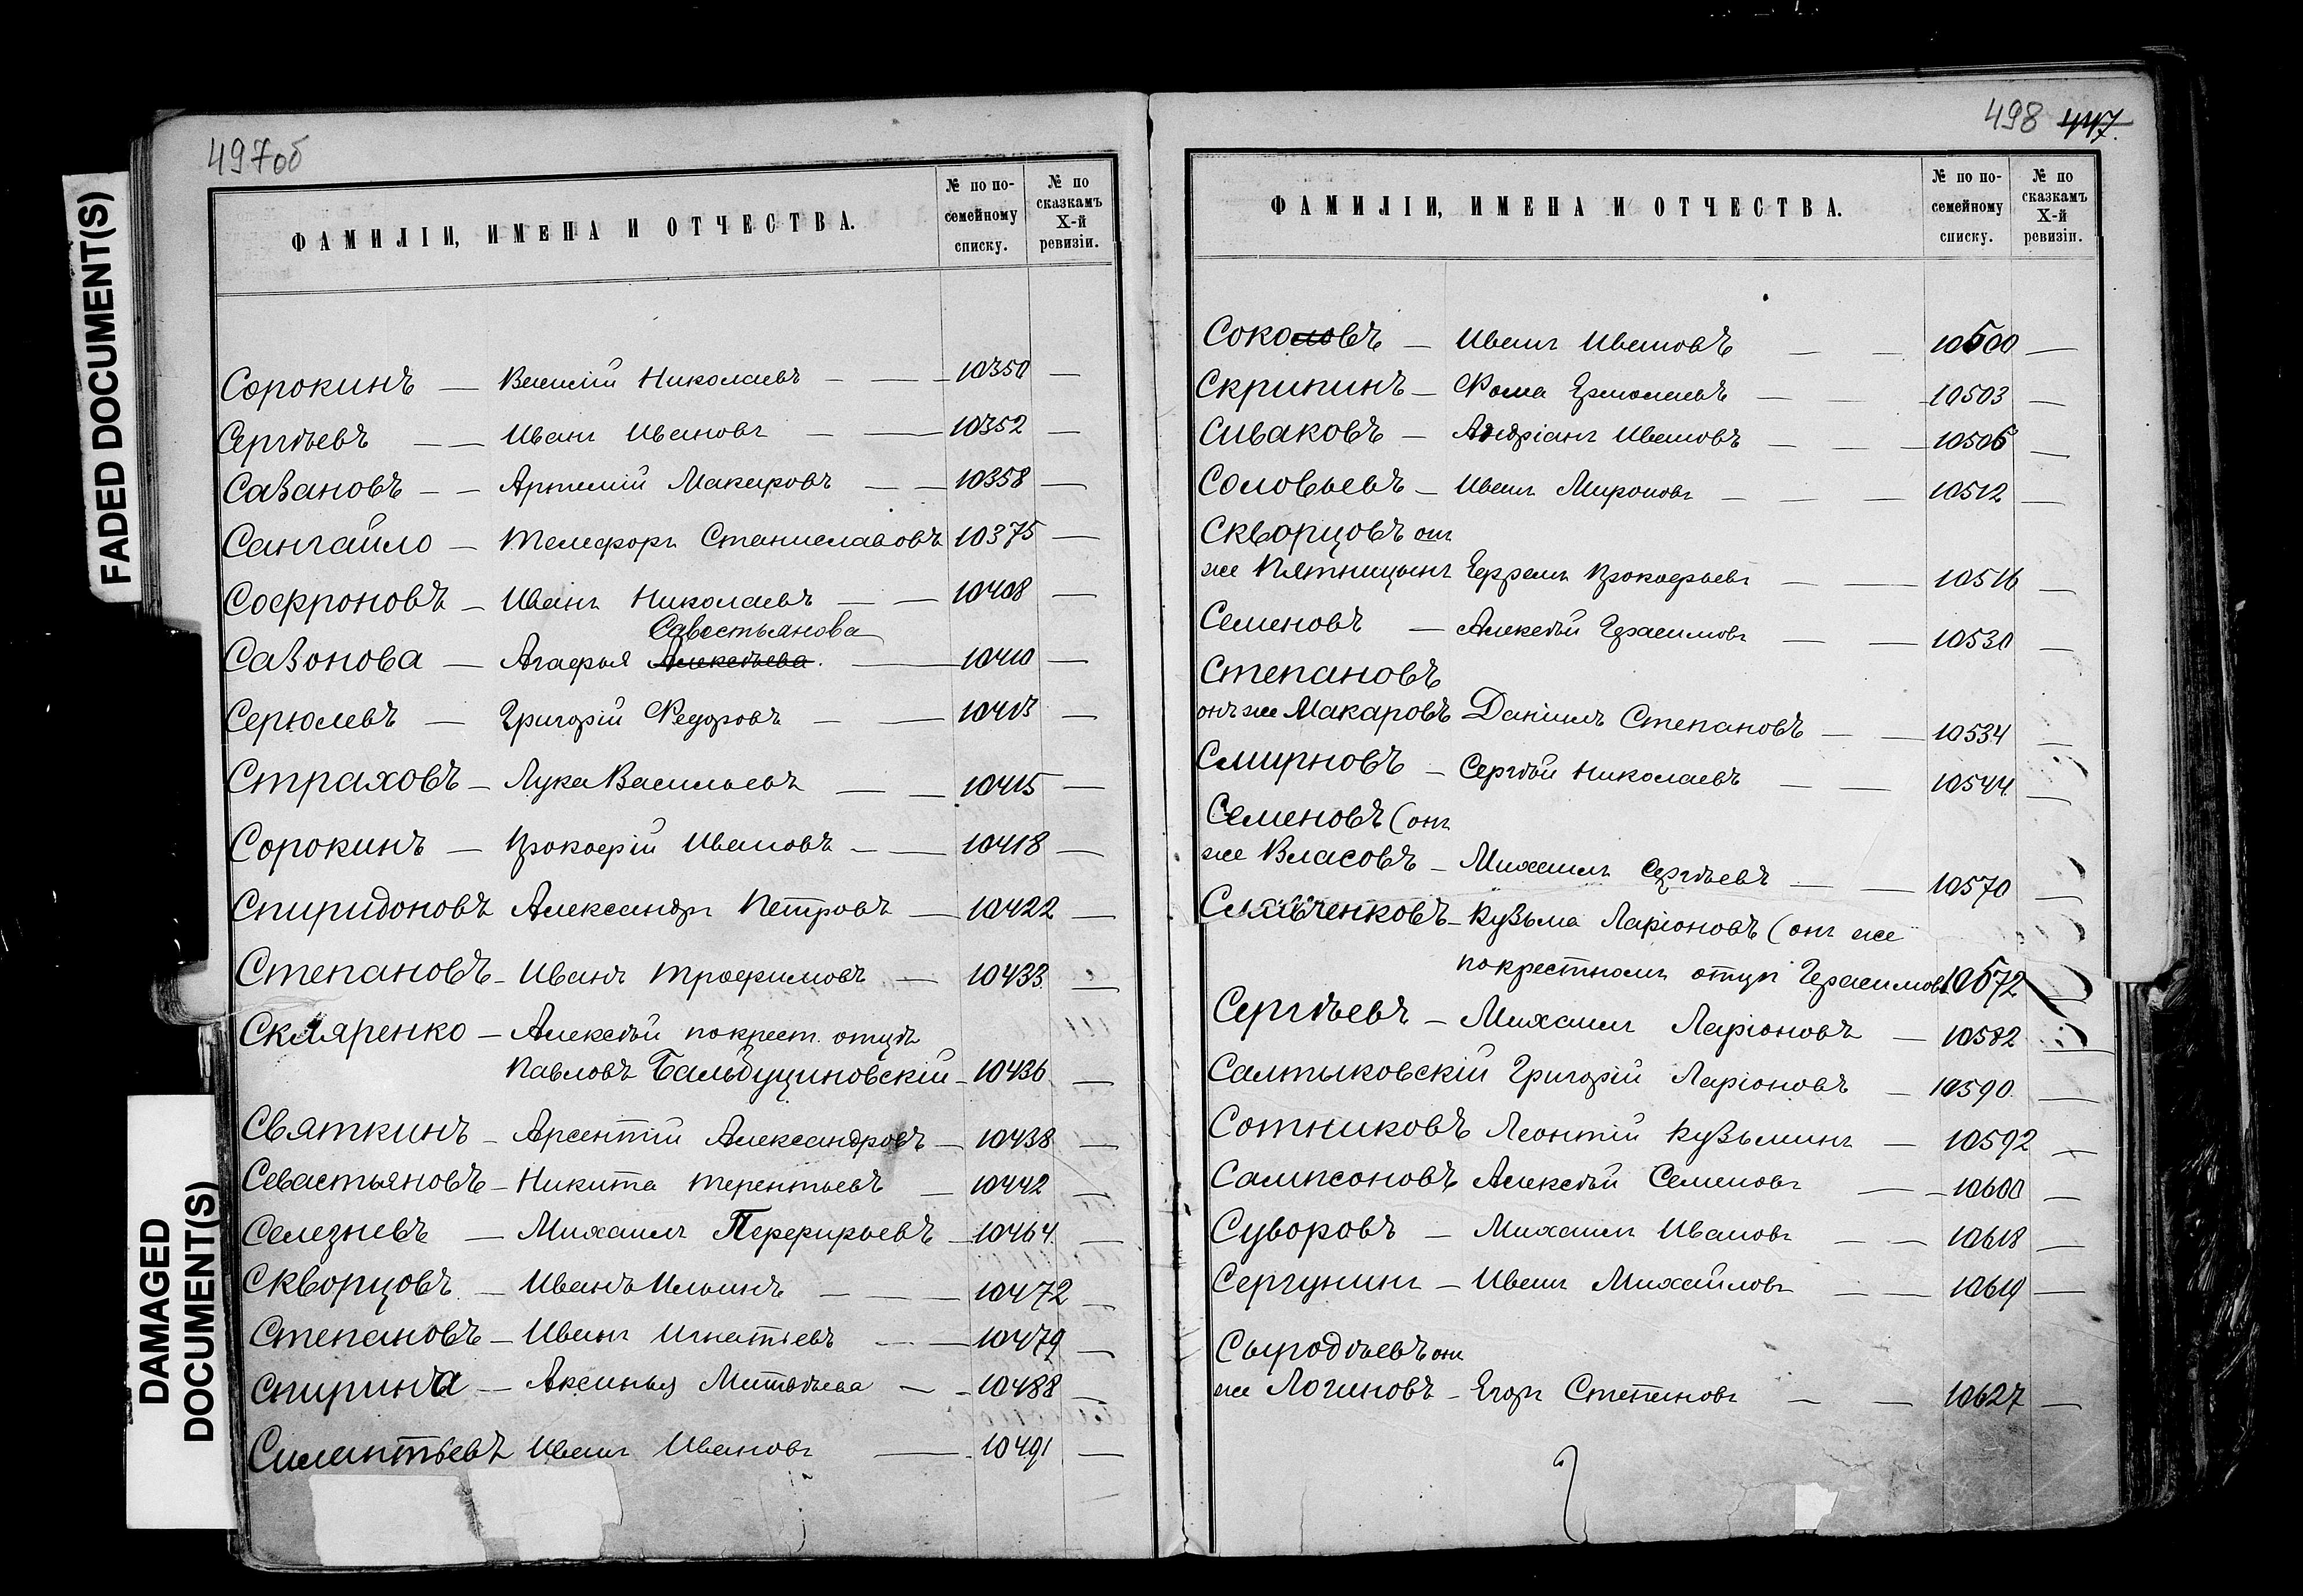 FADED DOCUMENT(S)
DAMAGED
DOCUMENT(S)
497об
ФАМИЛІИ, ИМЕНА И ОТЧЕСТВА.
№ по по-
семейному
списку.
№ по
сказкамъ
X-й
ревизіи.
Сорокинъ — Василій Николаевъ — — — 10350 —
Сергѣевъ — — Иванъ Ивановъ — — 10352 —
Сазановъ — — Артемій Макаровъ — — 10358 —
Сангайло — Телефоръ Станиславовъ 10375 —
Софроновъ — Иванъ Николаевъ — — 10408 —
Савостьянова
Сазонова — Агафья Алексѣева. — 10410 —
Серюлевъ — Григорій Федоровъ — — 10413 —
Страховъ — Лука Васильевъ — — 10415 —
Сорокинъ — Прокофій Ивановъ — — 10418 —
Спиридоновъ Александръ Петровъ — 10422 —
Степановъ — Иванъ Трофимовъ — 10433 —
Скляренко — Алексѣй по крест. отцѣ
Павловъ Бальбуциновскій — 10436 —
Святкинъ — Арсентій Александровъ — 10438 —
Севастьяновъ — Никита Терентьевъ — 10442 —
Селезневъ — Михаилъ Перфирьевъ — 10464 —
Скворцовъ — Иванъ Ильинъ — — — 10472 —
Степановъ — Иванъ Игнатіевъ — — 10479 —
Спирина — Аксинья Митофьева — — 10488 —
Силантьевъ Иванъ Ивановъ — 10491 —
498 447.
ФАМИЛІИ, ИМЕНА И ОТЧЕСТВА.
№ по по-
семейному
списку.
№ по
сказкамъ
X-й
ревизіи.
Соколовъ — Иванъ Ивановъ — — 10500 —
Скрипинъ — Фома Ермолаевъ — — 10503 —
Сиваковъ — Андріанъ Ивановъ — — — 10506 —
Соловьевъ — Иванъ Мироновъ — — — 10512 —
Скворцовъ онъ
же Пятницынъ Ефремъ Прокофьевъ — — 10516 —
Семеновъ — Алексѣй Герасимовъ — — 10530 —
Степановъ
онъ же Макаровъ Даніилъ Степановъ — — 10534 —
Смирновъ — Сергѣй Николаевъ — — 10544 —
Семеновъ (онъ
же Власовъ — Михаилъ Сергѣевъ — — 10570 —
Славченковъ — Кузьма Ларіоновъ (онъ же
по крестномъ отцѣ Герасимовъ 10572
Сергѣевъ — Михаилъ Ларіоновъ — 10582 —
Салтыковскій Григорій Ларіоновъ — 10590 —
Сотниковъ Леонтій Кузьминъ — 10592 —
Сампсоновъ Алексѣй Семеновъ — — 10600 —
Суворовъ — Михаилъ Ивановъ — — 10618 —
Сергунинъ — Иванъ Михайловъ — — 10619 —
Сыродѣевъ онъ
же Логиновъ — Егоръ Степановъ — — 10627 —